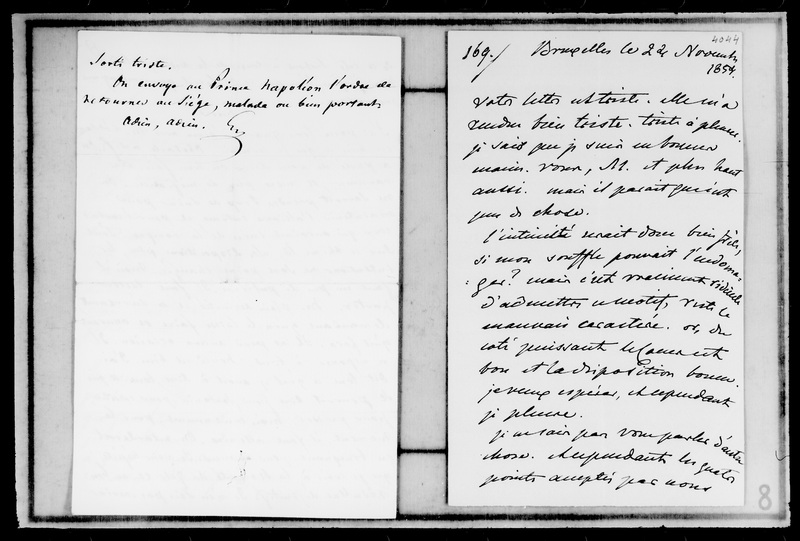 Sorti triste.
On envoye au Prince Napoléon l'ordre de
retourner au Siége, malade ou bien portant.
adieu, adieu.
4044
169./ Bruxelles le 22 Novembre
1854.
votre lettre est triste. elle m'a
rendu bien triste. triste à pleurer.
je sais que je suis en bonnes
mains. vous, M. et plus haut
aussi. mais il parait que c'est
peu de chose.
l'intimité serait donc bien frêle,
si mon souffle pouvait l'endoma-
ger? mais c'est vraiment ridicule
d'admettre ce motif, reste le
mauvais caractère. or, du
coté puissant le Coeur est
bon et la disposition bonne.
je veux espérer, et cependant
je pleure.
je ne sais pas vous parler d'autre
chose. et cependant les quatre
points acceptés par nous
8